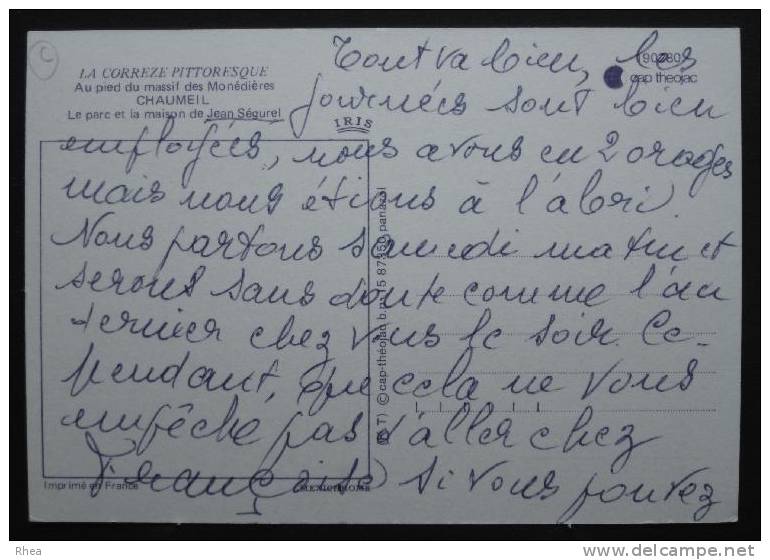 LA CORREZE PITTORESQUE
Au pied du massif des Monédières
CHAUMEIL
Le parc et la maison de Jean Ségurel
IRIS
cap theojac
Tout va bien, les
journées sont bien
employées, nous avons eu 2 orages
mais nous étions à l'abri.
Nous partons samedi matin et
serons sans doute comme l'an
dernier chez vous le soir. Ce-
pendant, que cela ne vous
empêche pas d'aller chez
Françoise si vous pouvez
© cap-théojac b.p. 15 87350 panazol
Imprimé en France
Rhea
delcampe.net